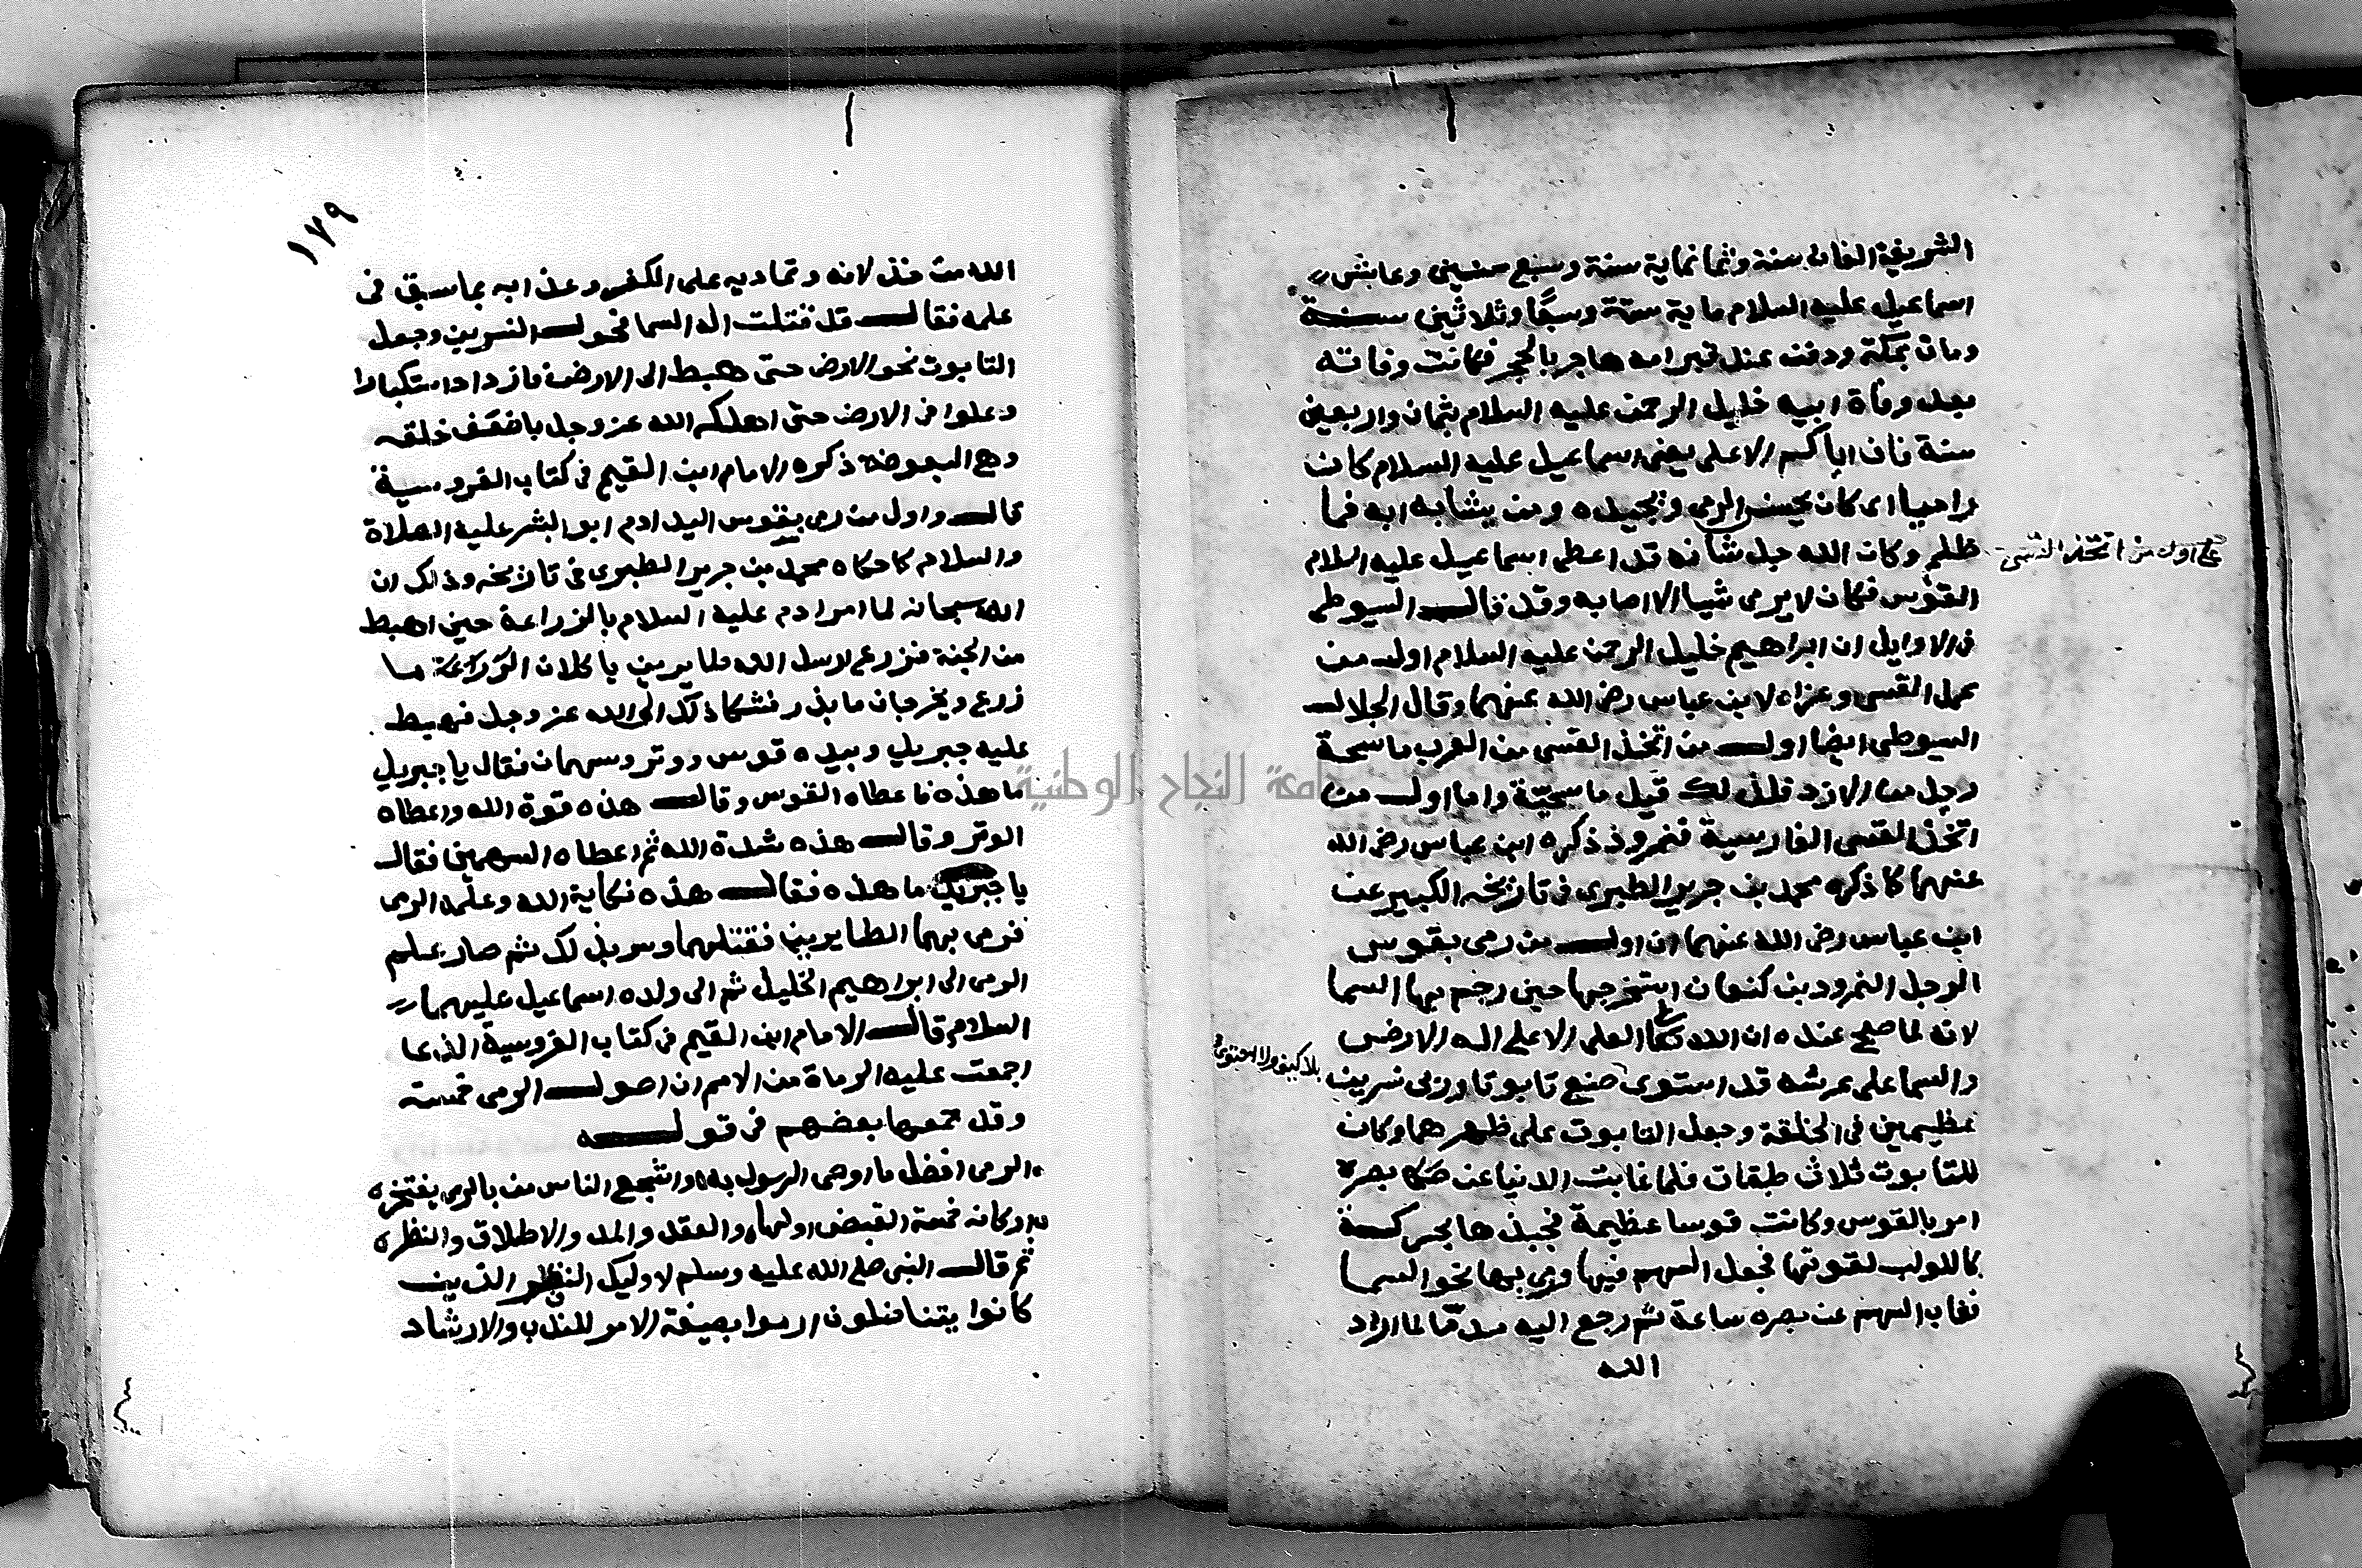 الشريفة الفان سنة وثمانماية سنة وسبع سنين وعاش
اسماعيل عليه السلام ماية سنة وسبعًا وثلاثين سنة
ومات بمكة ودفن عند قبر امه هاجر بالحجر فكانت وفاته
بعد وفاة ابيه خليل الرحمن عليه السلام بثمان واربعين
سنة فان اباكم الاعلى يعنى اسماعيل عليه السلام كان
راميا اى كان يحسن الرمى ويجيده ومن يشابه ابه فما
ظلم وكان الله جل شانه قد اعطى اسماعيل عليه السلام
على اول من اتخذ القسى
القوس فكان لا يرمى شيا الا اصابه وقد قال السيوطى
فى الاوايل ان ابراهيم خليل الرحمن عليه السلام اول من
عمل القسى وعزاه لابن عباس رضى الله عنهما وقال الجلال
السيوطى ايضا اول من اتخذ القسى من العرب ماسخة
رجل من الازد فلذلك قيل ماسخيّة واما اول من
اتخذ القسى الفارسية فنمروذ ذكره ابن عباس رضى الله
عنهما كما ذكره محمد بن جرير الطبرى فى تاريخه الكبير عن
ابن عباس رضى الله عنهما ان اول من رمى بقوس
الرجل النمرود بن كنعان استخرجها حين رجم بها السما
لانه لما صح عنده ان الله تعالى العلى الاعلى اله الارض
والسما على عرشه قد استوى صنع تابوتا وربى نسرين
بلا كيف ولا
عظيمين فى الخلقة وجعل التابوت على ظهرهما وكان
للتابوت ثلاث طبقات فلما غابت الدنيا عن بصره
امر بالقوس وكانت قوسا عظيمة فجبذها بحركة
كاللولب لقوتها فجعل السهم فيها ورمى بها نحو السما
فغاب السهم عن بصره ساعة ثم رجع اليه مدمّا لما اراد
الله
١٧٩
الله من خذلانه وتماديه على الكفر وعذابه بما سبق فى
علمه فقال قد قتلت اله السما فحول النسرين وجعل
التابوت نحو الارض حتى هبط الى الارض فازداد استكبارا
وعلوا فى الارض حتى اهلكه الله عز وجل باضعف خلقه
وهى البعوضة ذكره الامام ابن القيم فى كتاب الفروسية
قال واول من رمى بقوس اليد ادم ابو البشر عليه الصلاة
والسلام كما حكاه محمد بن جرير الطبرى فى تاريخه وذلك ان
الله سبحانه لما امر ادم عليه السلام بالزراعة حين اهبط
من الجنة فزرع ارسل الله طايرين ياكلان الزراعة ما
زرع ويخرجان ما بذر فشكا ذلك الى الله عز وجل فهبط
عليه جبريل وبيده قوس ووتر وسهمان فقال يا جبريل
ما هذه فاعطاه القوس وقال هذه قوة الله واعطاه
الوتر وقال هذه شدة الله ثم اعطاه السهمين فقال
يا جبريل ما هذه فقال هذه نكاية الله وعلمه الرمى
فرمى بهما الطايرين فقتلهما وسر بذلك ثم صار علم
الرمى الى ابراهيم الخليل ثم الى ولده اسماعيل عليهما
السلام قال الامام ابن القيم فى كتاب الفروسية الذى
اجمعت عليه الرماة من الامم ان اصول الرمى خمسة
وقد جمعها بعضهم فى قوله
الرمى افضل ما اوصى الرسول به واشجع الناس من بالرمى يفتخره
اركانه خمسة القبض اولها والعقد والمد والاطلاق والنظره
ثم قال النبى صلى الله عليه وسلم لاوليك النفر الذين
كانوا يتناضلون ارموا بصيغة الامر للندب والارشاد
جامعة النجاح الوطنية